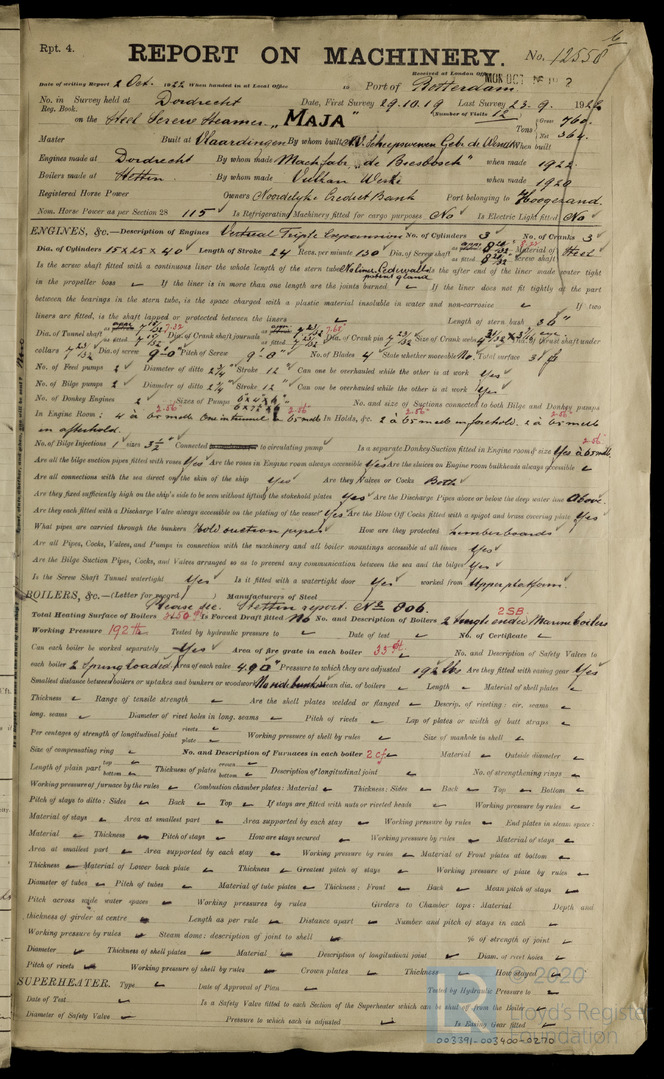 6
Rpt. 4.
REPORT ON MACHINERY.
No. 12558
Received at London Office
MON OCT
Date of writing Report 2 Oct. 1922 When handed in at Local Office 10 Port of Rotterdam
No. in Survey held at Dordrecht Date, First Survey 29.10.19 Last Survey 23.9. 1922
Reg. Book. (Number of Visits 12)
on the Steel Screw Steamer "MAJA" Tons Gross 760. Net 364.
Master Built at Vlaardingen By whom built When built
Engines made at Dordrecht By whom made Machfabr. "de Biesbosch" when made 1922.
Boilers made at Stettin. By whom made Vulkan Werke when made 1920
Registered Horse Power Owners Noordelyke Crediet Bank Port belonging to Hoogezand.
Nom. Horse Power as per Section 28 115 Is Refrigerating Machinery fitted for cargo purposes No Is Electric Light fitted No
ENGINES, &c.—Description of Engines Vertical Triple Expansion No. of Cylinders 3 No. of Cranks 3
Dia. of Cylinders 15 x 25 x 40 Length of Stroke 24 Revs. per minute 130 Dia. of Screw shaft Material of screw shaft Steel
Is the screw shaft fitted with a continuous liner the whole length of the stern tube No liner, Is the after end of the liner made water tight
in the propeller boss If the liner is in more than one length are the joints burned If the liner does not fit tightly at the part
between the bearings in the stern tube, is the space charged with a plastic material insoluble in water and non-corrosive If two
liners are fitted, is the shaft lapped or protected between the liners Length of stern bush 36"
Dia. of Tunnel shaft Dia. of Crank shaft journals Dia. of Crank pin 7 23/32 Size of Crank webs Dia. of thrust shaft under
collars 7 23/32 Dia. of screw 9'-0" Pitch of Screw 9'-0" No. of Blades 4 State whether moveable No. Total surface 38
No. of Feed pumps 2 Diameter of ditto 2 3/4 Stroke 12" Can one be overhauled while the other is at work Yes
No. of Bilge pumps 2 Diameter of ditto 2 3/4 Stroke 12" Can one be overhauled while the other is at work Yes
No. of Donkey Engines 2 Sizes of Pumps No. and size of Suctions connected to both Bilge and Donkey pumps
In Engine Room: 4 à 65 m/m One in tunnel à 65 m/m In Holds, &c. 2 à 65 m/m in forehold. 2 à 65 m/m
in afterhold.
No. of Bilge Injections 1 sizes 3 1/2" Connected to circulating pump Is a separate Donkey Suction fitted in Engine room & size Yes à 65 m/m
Are all the bilge suction pipes fitted with roses Yes Are the roses in Engine room always accessible Yes Are the sluices on Engine room bulkheads always accessible
Are all connections with the sea direct on the skin of the ship Yes Are they Valves or Cocks Both
Are they fixed sufficiently high on the ship's side to be seen without lifting the stokehold plates Yes Are the Discharge Pipes above or below the deep water line Above.
Are they each fitted with a Discharge Valve always accessible on the plating of the vessel Yes Are the Blow Off Cocks fitted with a spigot and brass covering plate Yes
What pipes are carried through the bunkers Hold suction pipes How are they protected Limberboards
Are all Pipes, Cocks, Valves, and Pumps in connection with the machinery and all boiler mountings accessible at all times Yes
Are the Bilge Suction Pipes, Cocks, and Valves arranged so as to prevent any communication between the sea and the bilges Yes
Is the Screw Shaft Tunnel watertight Yes Is it fitted with a watertight door Yes worked from Upper platform.
BOILERS, &c.—(Letter for record ) Manufacturers of Steel
Please see Stettin report No 806.
Total Heating Surface of Boilers Is Forced Draft fitted No No. and Description of Boilers 2 single ended Marine boilers 2 SB.
Working Pressure 192 lb Tested by hydraulic pressure to Date of test No. of Certificate
Can each boiler be worked separately Yes Area of fire grate in each boiler No. and Description of Safety Valves to
each boiler 2 Spring loaded. Area of each valve 4.90" Pressure to which they are adjusted 192 lbs Are they fitted with easing gear Yes
Smallest distance between boilers or uptakes and bunkers or woodwork Mean dia. of boilers Length Material of shell plates
Thickness Range of tensile strength Are the shell plates welded or flanged Descrip. of riveting: cir. seams
long. seams Diameter of rivet holes in long. seams Pitch of rivets Lap of plates or width of butt straps
Per centages of strength of longitudinal joint rivets plate Working pressure of shell by rules Size of manhole in shell
Size of compensating ring No. and Description of Furnaces in each boiler 2 cf Material Outside diameter
Length of plain part top bottom Thickness of plates crown bottom Description of longitudinal joint No. of strengthening rings
Working pressure of furnace by the rules Combustion chamber plates: Material Thickness: Sides Back Top Bottom
Pitch of stays to ditto: Sides Back Top If stays are fitted with nuts or riveted heads Working pressure by rules
Material of stays Area at smallest part Area supported by each stay Working pressure by rules End plates in steam space:
Material Thickness Pitch of stays How are stays secured Working pressure by rules Material of stays
Area at smallest part Area supported by each stay Working pressure by rules Material of Front plates at bottom
Thickness Material of Lower back plate Thickness Greatest pitch of stays Working pressure of plate by rules
Diameter of tubes Pitch of tubes Material of tube plates Thickness: Front Back Mean pitch of stays
Pitch across wide water spaces Working pressures by rules Girders to Chamber tops: Material Depth and
thickness of girder at centre Length as per rule Distance apart Number and pitch of stays in each
Working pressure by rules Steam dome: description of joint to shell % of strength of joint
Diameter Thickness of shell plates Material Description of longitudinal joint Diam. of rivet holes
Pitch of rivets Working pressure of shell by rules Crown plates Thickness How stayed
SUPERHEATER. Type Date of Approval of Plan Tested by Hydraulic Pressure to
Date of Test Is a Safety Valve fitted to each Section of the Superheater which can be shut off from the Boiler
Diameter of Safety Valve Pressure to which each is adjusted Is Easing Gear fitted
© 2020
Lloyd's Register
Foundation
003391-003400-0270